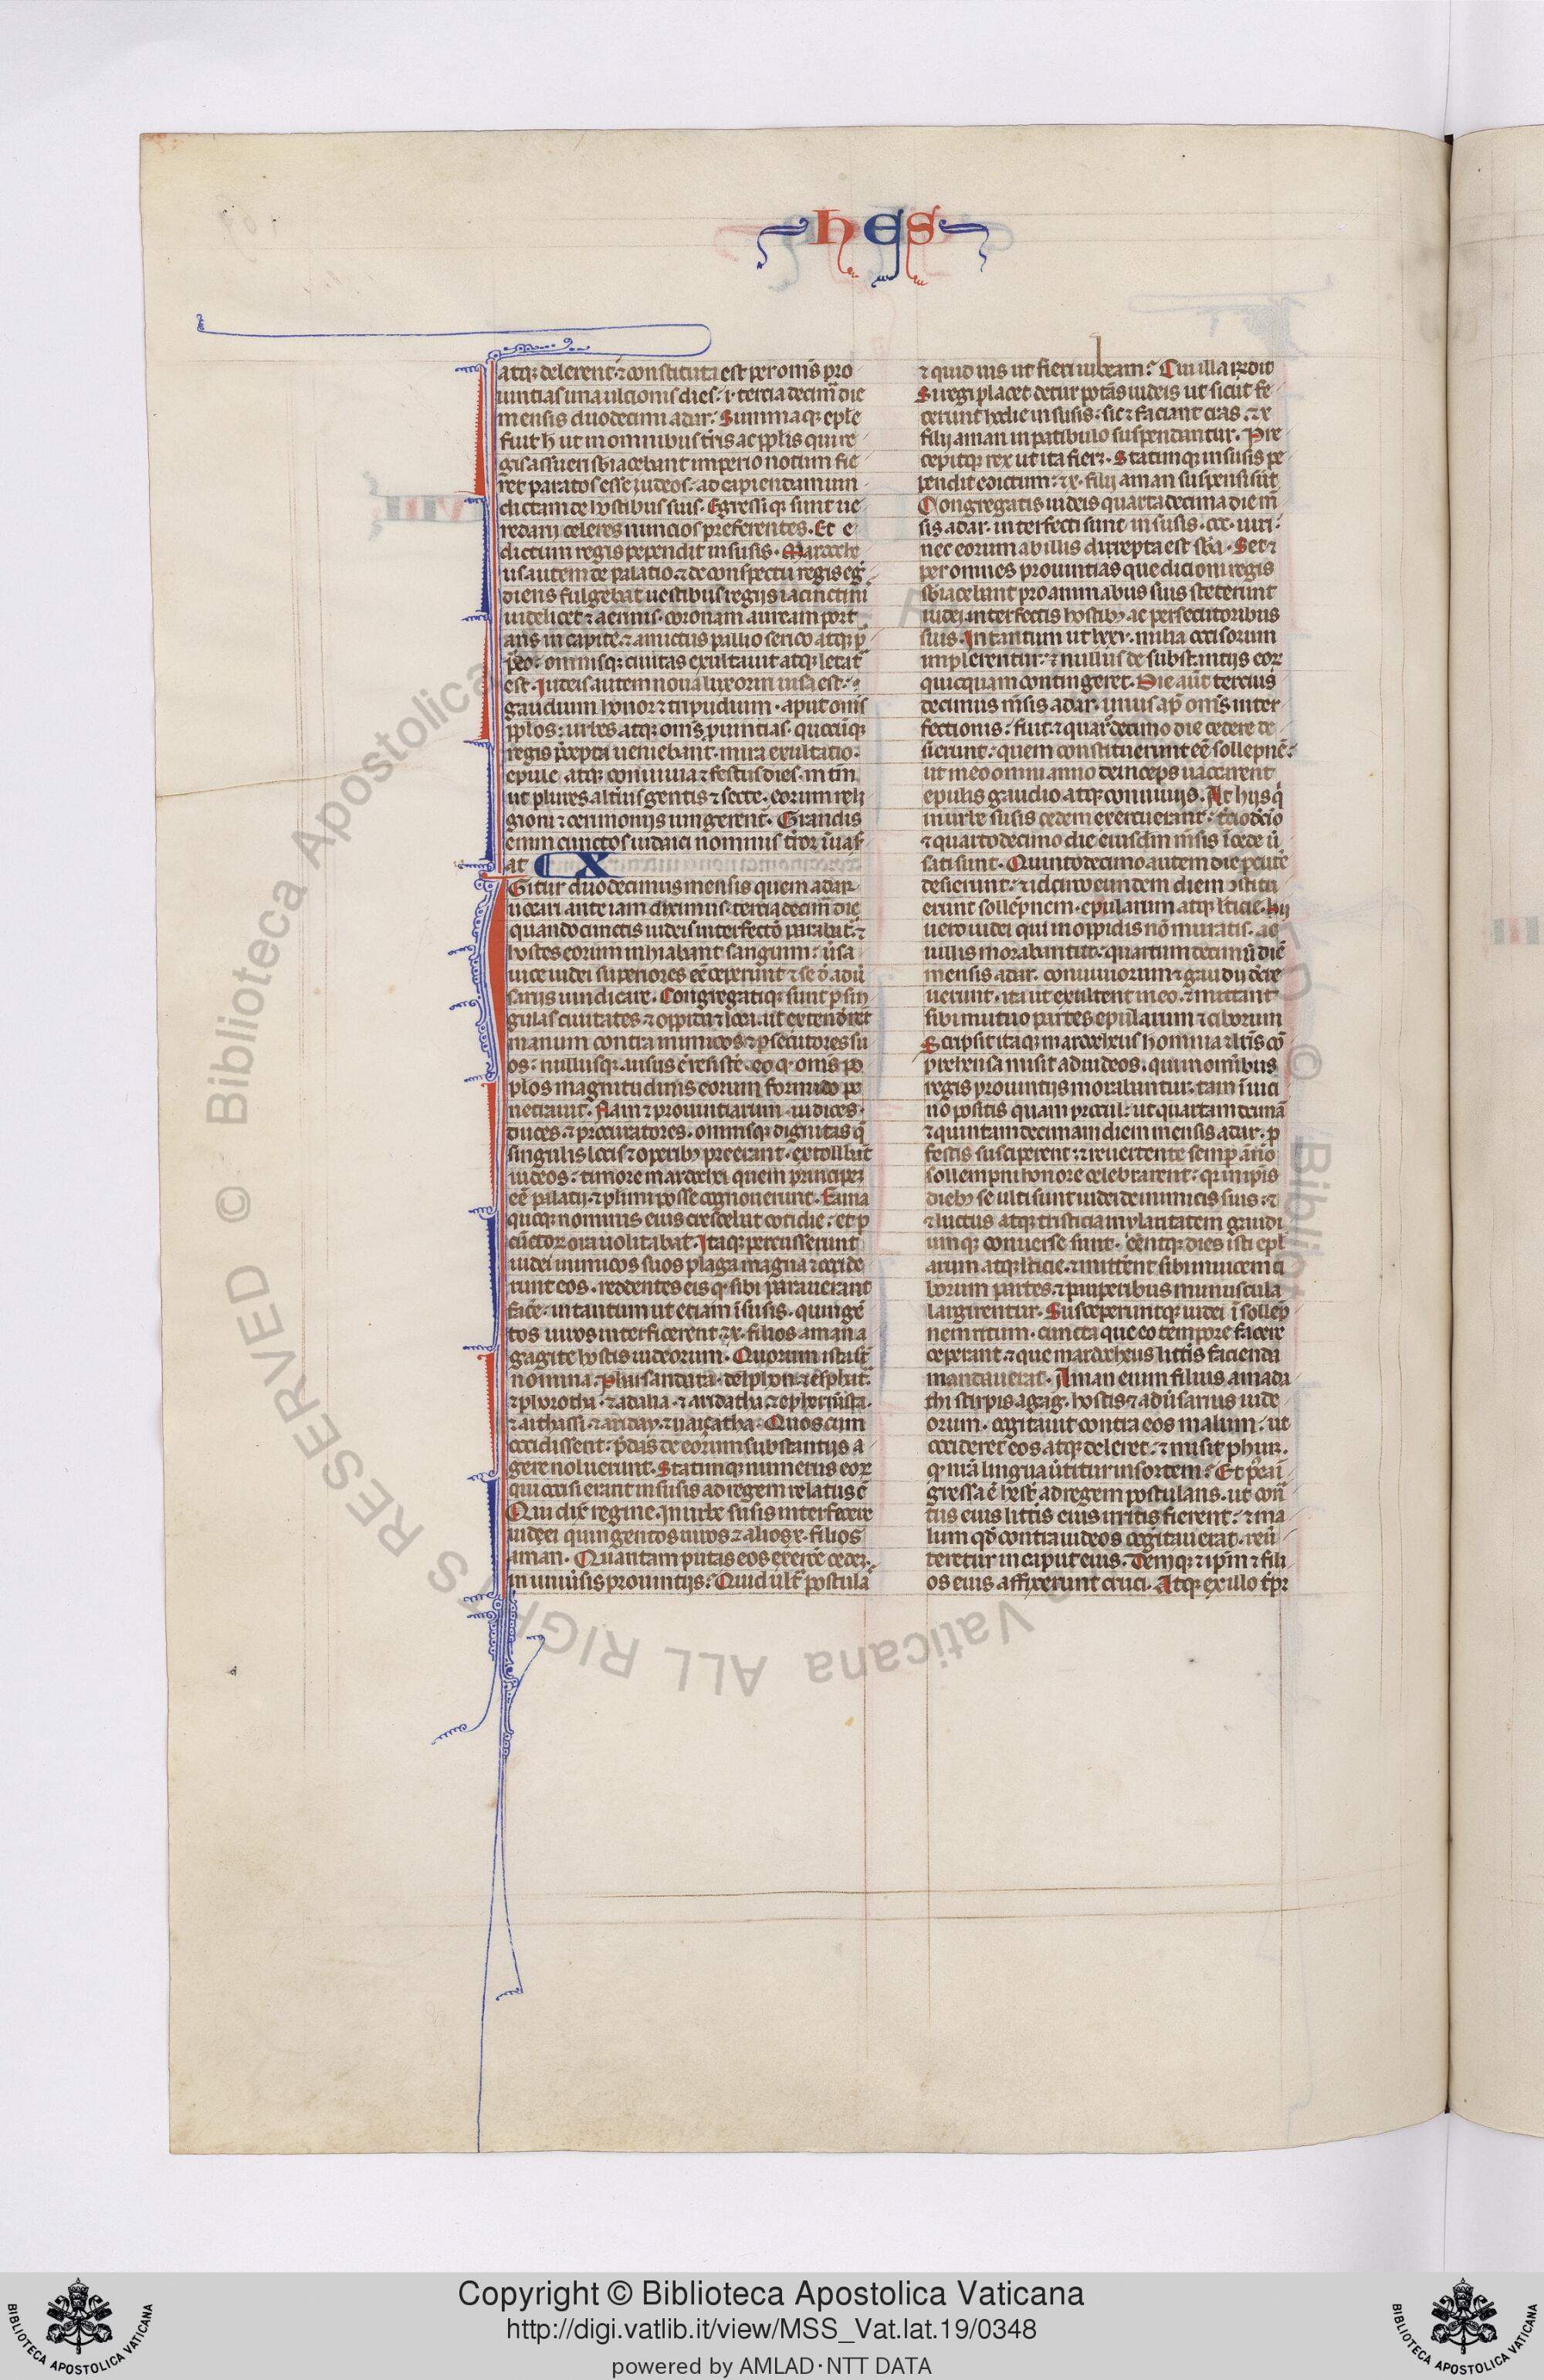 hes
atq; delerent. ⁊ constituta est per om̄s pro
uintias una ultionis dies. i. tercia decim̄ die
mensis duodecimi adar. Summaq; ep̄le
fuit h̄ ut in omnibus t̄ris ac pp̄lis qui re
gis assueri sb̄iacebant imperio notum fie
ret paratos esse iudeos. ad capiendam uin
dictam de hostibus suis. Egressiq; sunt ue
redarij celeres nuncios preferentes. Et e
dictum regis pependit in susis. Mardoche
us autem de palatio. ⁊ de conspectu regis eg̅
diens fulgebat uestibus regijs iacinctini
uidelicet ⁊ aerinis. coronam auream port
ans in capite. ⁊ amictus pallio serico atq; p̄
p̄eo. omnisq; ciuitas exultauit atq; letat̄
est. Iudeis autem noua lux oriri uisa est.
gaudium honor ⁊ tripudium. aput om̄s
pp̄los. urbes atq; om̄s p̄uintias. quocūq;
regis p̄cepta ueniebant. mira exultatio.
epule atq; conuiuia ⁊ festus dies. in tm̄
ut plures alt̄ius gentis ⁊ secte. eorum reli
gioni ⁊ cerimonijs iungerent̄. Grandis
enim cunctos iudaici nominis t̄ror īuas
at IX
Gitur duodecimus mensis quem adar
uocari ante iam diximus. tercia decim̄ die
quando cunctis iudeis interfectō parabat̄. ⁊
hostes eorum inhiabant sanguini. ūsa
uice iudei superiores eē ceperunt ⁊ se d̄ adū
sarijs uindicare. Congregatiq; sunt p̄ sin
gulas ciuitates ⁊ oppida ⁊ loca. ut extend̄ret
manum contra inimicos ⁊ p̄secutores su
os. nullusq; ausus ē resist̄e. eo q. om̄s po
plos magnitudinis eorum formido pe
netrauit. Nam ⁊ prouintiarum iudices.
duces. ⁊ procuratores. omnisq; dignitas q̄
singulis locis ⁊ operib; preerant. extollebāt
iudeos. timore mardochei quem principem
eē palatij. ⁊ plurim̄ posse cognouerunt. Fama
quoq; nominis eius crescebat cotidie. et p̄
cūctor̄ ora uolitabat. Itaq; percusserunt
iudei inimicos suos plaga magna ⁊ occide
runt eos. reddentes eis q. sibi parauerant
face̅. in tantum ut etiam ī susis. quingē
tos uiros interficerent. ⁊ x. filios aman a
gagite hostis iudeorum. Quorum ista sūt
nomina. Pharsandata. delphon. ⁊ esphat.
⁊ phorotha. ⁊ adalia. ⁊ aridatha. ⁊ ephermsta.
⁊ arthassi. ⁊ ariday. ⁊ uaizatha. Quos cum
occidissent. p̄das de eorum substantijs a
gere noluerunt. Statimq; numerus eor̄
qui occisi erant in susis ad regem relatus ē
Qui dix̄ regine. In urbe susis interfecere
iudei quingentos uiros. ⁊ alios x. filios
aman. Quantam putas eos exerce̅ cedem.
in uniūsis prouintijs. Quid ult̄ postula
⁊ quid uis ut fieri iubeam. Cui illa r̄ndit
Si regi placet detur potās iudeis ut sicut fe
cerunt hodie in susis. sic ⁊ faciant cras. ⁊ x
filij aman in patibulo suspendantur. Pre
cepitq; rex ut ita fieret. Statimq; in susis pe
pendit edictum. ⁊ x. filij aman suspensi sūt
Congregatis iudeis quarta decima die m̄
sis adar. interfecti sunt in susis. ccc. uiri.
nec eorum ab illis dirrepta est sb̄a. Set ⁊
per omnes prouintias que dicioni regis
sb̄iacebant pro animabus suis steterunt
iudei. interfectis hostib; ac persecutoribus
suis. In tantum ut lxxv. milia occisorum
implerentur. ⁊ nullus de substantijs eor̄
quicquam contingeret. Die aūt tercius
decimus m̄sis adar. unus ap̄ om̄s inter
fectionis. fuit. ⁊ quar̄decimo die cedere de
sierunt. quem constituerunt eē sollepnē.
ut in eo omni anno deinceps uaccarent
epulis gaudio atq; conuiuijs. At hij q̄
in urbe susis cedem exercuerant. tciodecio
⁊ quartodecimo die eiusdm̄ m̄sis ī cede ū
sati sunt. Quintodecimo autem die p̄cute̅
desierunt. ⁊ idcirco eundem diem ɔstitu
erunt sollepnem. epularum atq; leticie. Hij
uero iudei qui in oppidis nō muratis. ac
uillis morabantur. quartum decimū diē
mensis adar. conuiuiorum ⁊ gaudij decre
uerunt. ita ut exultent in eo. ⁊ mittant
sibi mutuo partes epularum ⁊ ciborum
Scripsit itaq; mardocheus h omnia ⁊ l̄t̄is cō
prehensa misit ad iudeos. qui in omnibus
regis prouintijs morabantur. tam ī uici
nō positis quam procul. ut quartam decimā
⁊ quintam decimam diem mensis adar. p̄
festis susciperent. ⁊ reuertente semp̄ āno
sollempni honore celebrarent. q̄ in ip̄is
dieb; se ulti sunt iudei de inimicis suis. ⁊
⁊ luctus atq; tristicia in ylaritatem gaudi
umq; conuerse sunt. eēntq; dies isti epl̄
arum atq; l̄ticie. ⁊ mittent̄ sibi inuicem ci
borum partes. ⁊ pauperibus munuscula
largirentur. Susceperuntq; iudei ī sollep̄
nem ritum. cuncta que eo tempore facere
ceperant. ⁊ que mardocheus litt̄is facienda
mandauerat. Aman enim filius amada
thi stirpis agag. hostis ⁊ adūsarius iude
orum. cogitauit contra eos malum. ut
occideret eos atq; deleret. ⁊ misit phur.
q. nr̄a lingua ūtitur in sortem. Et p̄ea ī
gressa ē hest̄ ad regem postulans. ut con̄
tus eius litt̄is eius irritis fierent. ⁊ ma
lum qd̄ contra iudeos cogitauerat. reū
teretur in caput eius. Demq; ⁊ ip̄m ⁊ fili
os eius affixerunt cruci. Atq; ex illo t̄pr
© Biblioteca Apostolica Vaticana ALL RIGHTS RESERVED
Copyright © Biblioteca Apostolica Vaticana
http://digi.vatlib.it/view/MSS_Vat.lat.19/0348
powered by AMLAD·NTT DATA
BIBLIOTECA APOSTOLICA VATICANA
BIBLIOTECA APOSTOLICA VATICANA